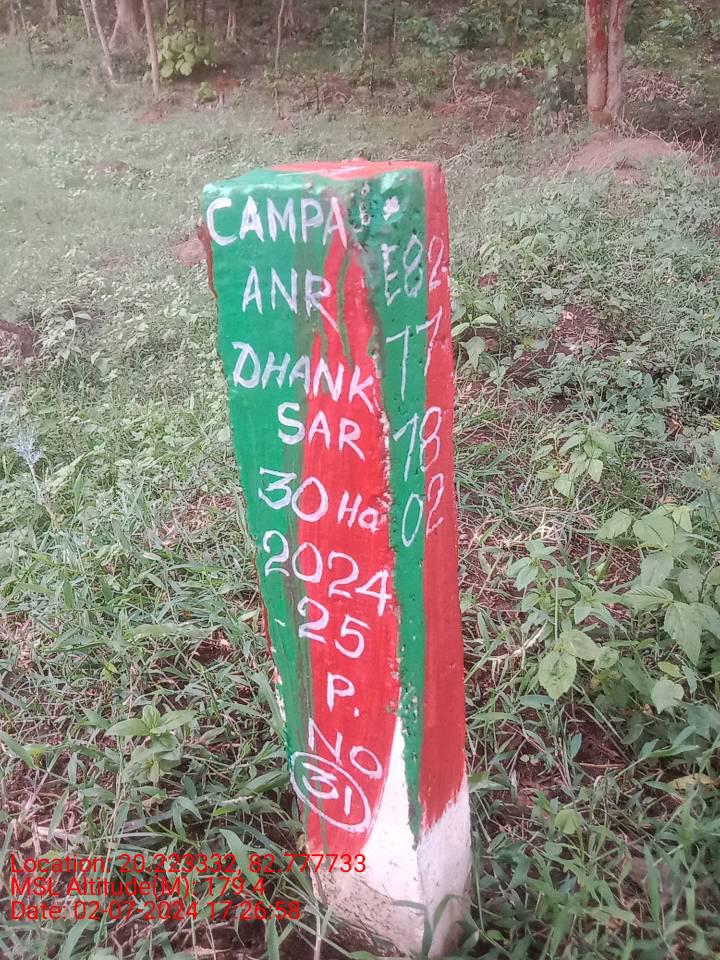 CAMPA
ANR
DHANK
SAR
30 Ha
2024
25
P.
NO
31
E82
77
78
02
Location: 20.223332, 82.777733
MSL Altitude(M): 179.4
Date: 02-07-2024 17:26:58